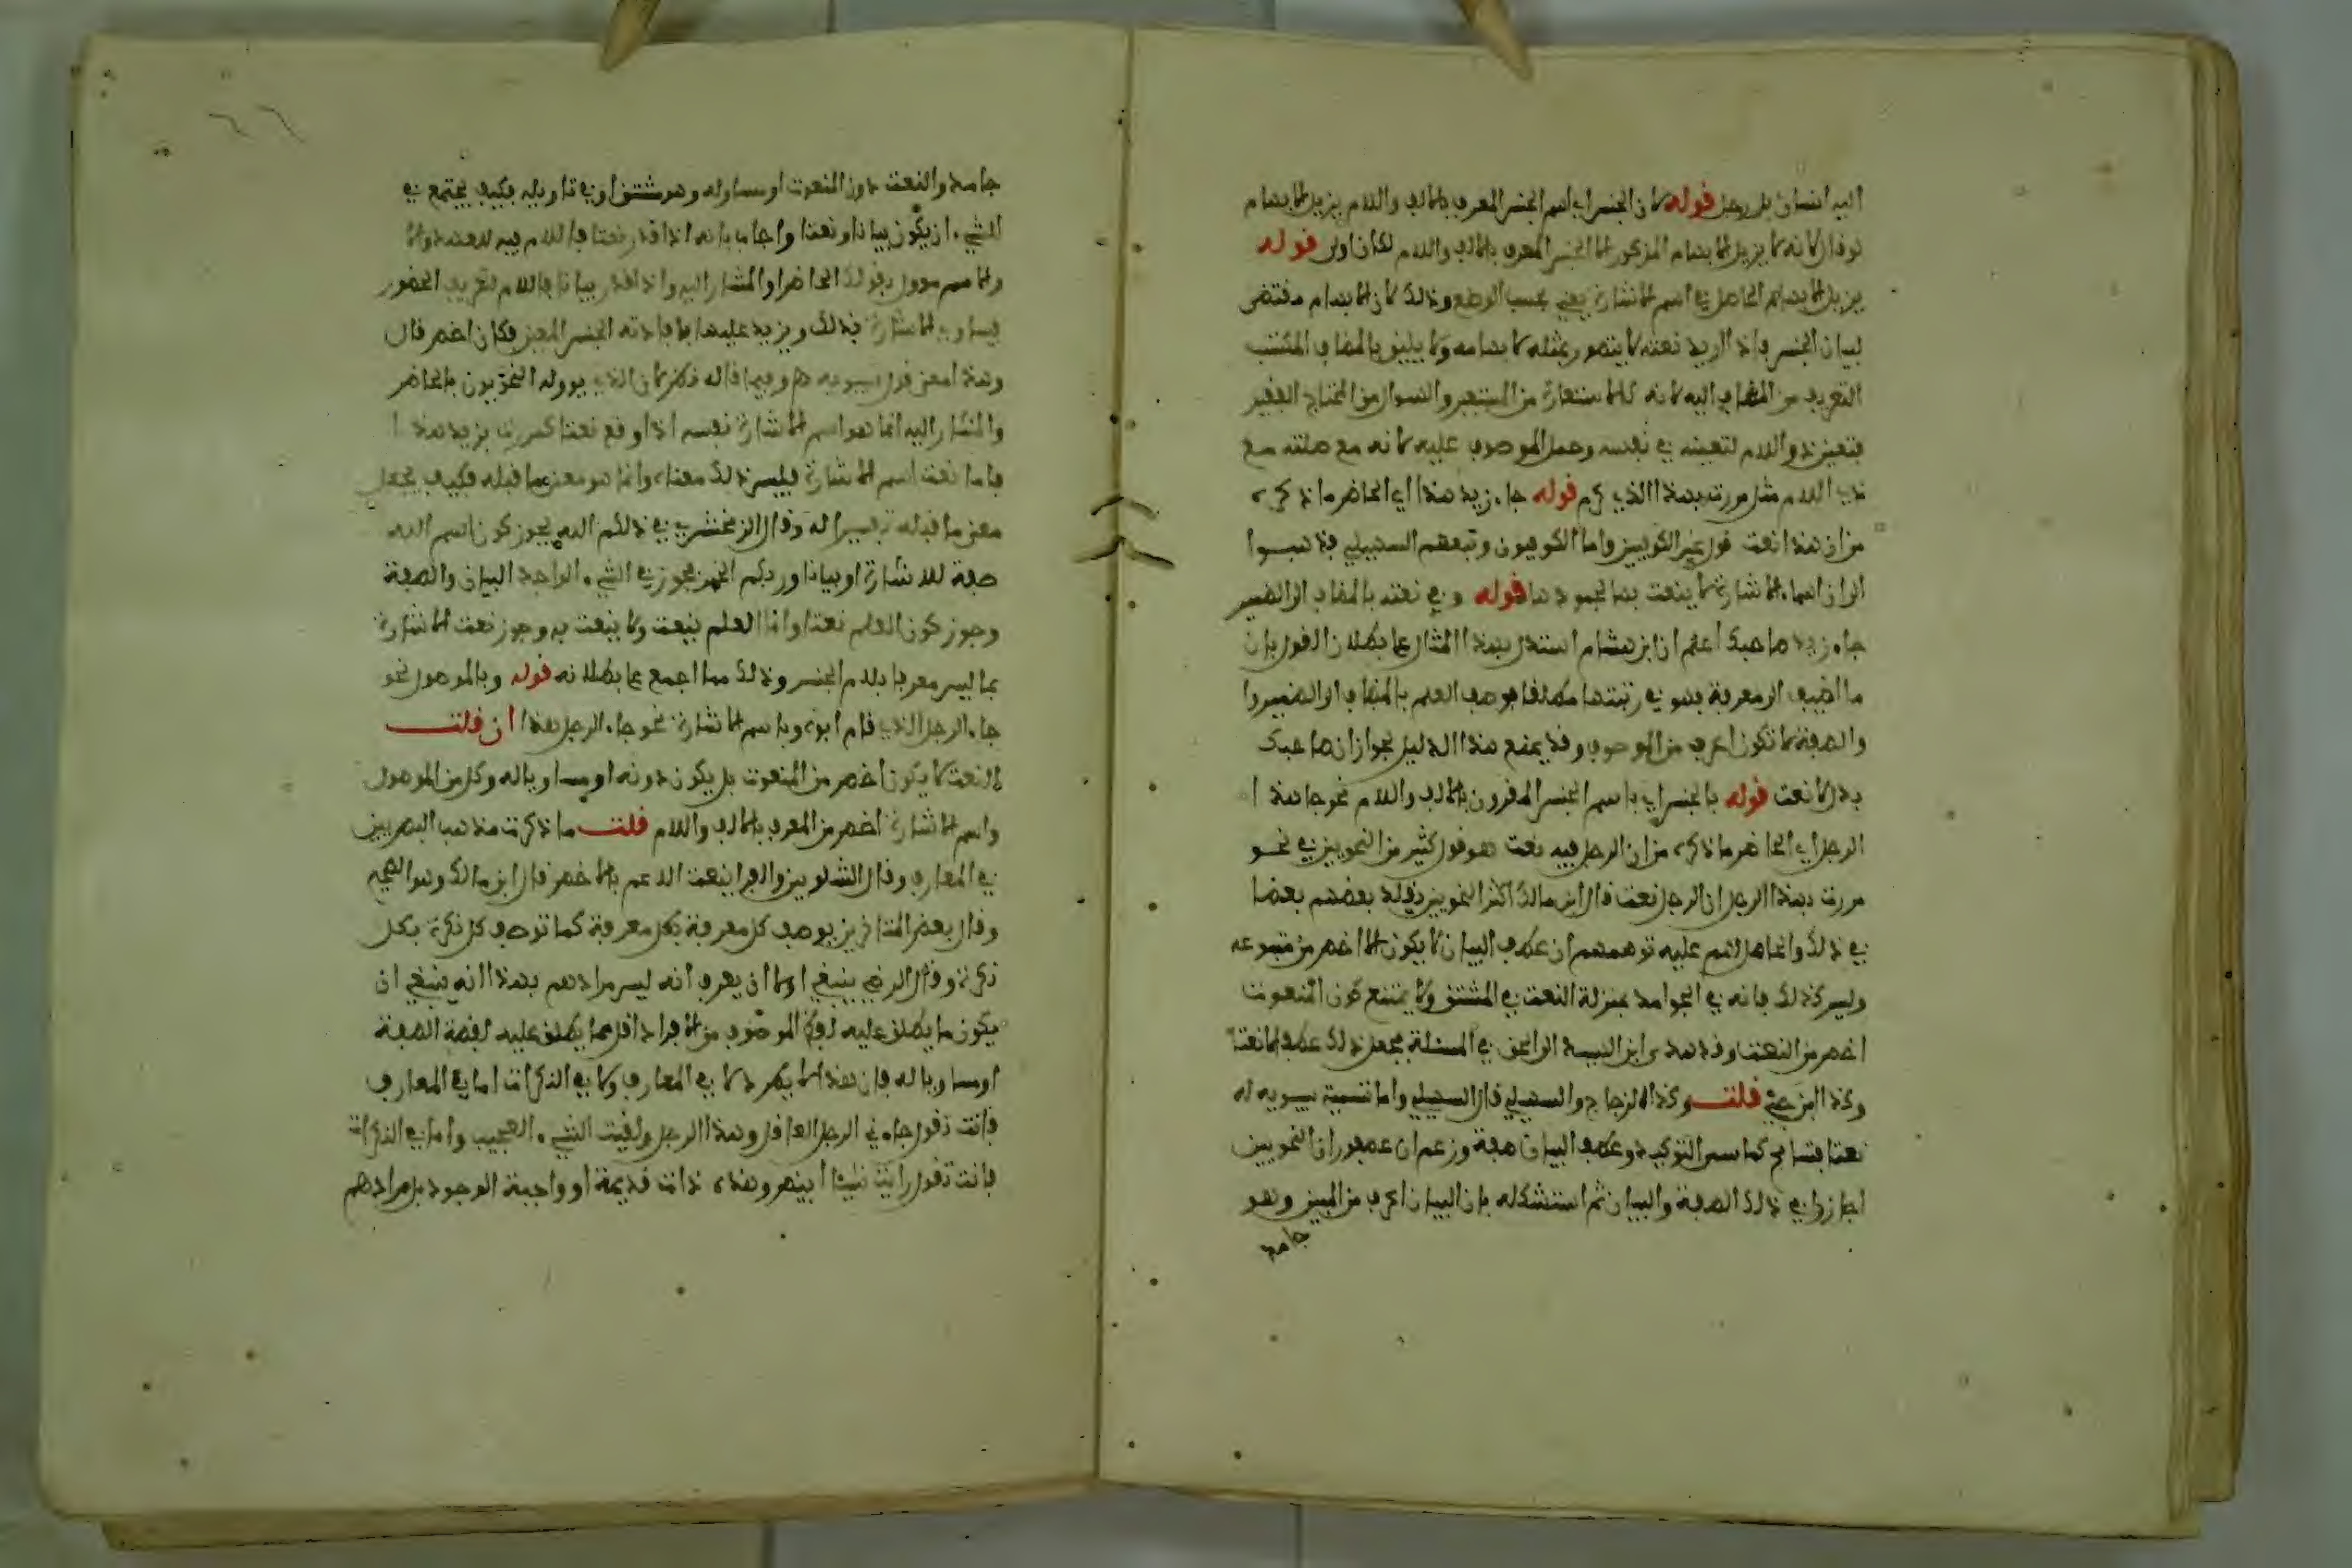 اليه انسان بل رجل قوله لان الجنس اي اسم الجنس المعرف بالالف واللام يزيل الابهام
لو قال لانه لا يزيل الابهام المذكور الا الجنس المعرف بالالف واللام لكان اولى قوله
يزيل الابهام الحاصل في اسم الاشارة يعني بحسب الوضع وذلك لان الابهام مقتضى
لبيان الجنس فاذا اريد نعته لا يتصور بمثله لابهامه ولا يليق بالمضاف المكتسب
التعريف من المضاف اليه لانه كالاستعارة من المستعير والسوال من المحتاج الفقير
فتعين ذو اللام لتعينه في نفسه وحمل الموصول عليه لانه مع صلته مع
ذي اللام مثل مررت بهذا الذي كرم قوله جاء زيد هذا اي الحاضر ما ذكره
من ان هذا نعت قول غير الكوفيين واما الكوفيون وتبعهم السهيلي فذهبوا
الى ان اسماء الاشارة لا ينعت بها لجمودها قوله وفي نعته بالمضاف الى الضمير
جاء زيد صاحبك اعلم ان ابن هشام استدل بهذا المثال على بطلان القول بان
ما اضيف الى معرفة فهو في رتبتها مطلقا فوصف العلم بالمضاف الى الضمير
والصفة لا تكون اعرف من الموصوف وقد يمنع هذا الدليل لجواز ان صاحبك
بدل لا نعت قوله بالجنس اي باسم الجنس المقرون بالالف واللام نحو جا هذا
الرجل اي الحاضر ما ذكره من ان الرجل فيه نعت هو قول كثير من النحويين في نحو
مررت بهذا الرجل ان الرجل نعت قال ابن مالك اكثر النحويين يقلد بعضهم بعضا
في ذلك والحامل لهم عليه توهمهم ان عطف البيان لا يكون الا اخص من متبوعه
وليس كذلك فانه في الجوامد بمنزلة النعت في المشتق ولا يمتنع كون المنعوت
اخص من النعت وقد هدى ابن السيد الى الحق في المسئلة فجعل ذلك عطفا لا نعتا
وكذا ابن جني قلت وكذا الزجاج والسهيلي قال السهيلي واما تسمية سيبويه له
نعتا فتسامح كما سمى التوكيد وعطف البيان صفة وزعم ابن عصفور ان النحويين
اجازوا في ذلك الصفة والبيان ثم استشكله بان البيان اعرف من المبين وهو
جامد
جامد والنعت دون المنعوت او مساو له وهو مشتق او في تاويله فكيف يجتمع في
الشيء ان يكون بيانا ونعتا واجاب بانه اذا قدر نعتا فاللام فيه للعهد
والاسم موول بقولك الحاضر او المشار اليه واذا قدر بيانا فاللام لتعريف الحضور
فيساوي الاشارة بذلك ويزيد عليها بافادته الجنس المعين فكان اخص قال
وهذا معنى قول سيبويه وفيما قاله نظر لان الذي يووله النحويون بالحاضر
والمشار اليه انما هو اسم الاشارة نفسه اذا وقع نعتا كمررت بزيد هذا
فاما نعت اسم الاشارة فليس ذلك معناه وانما هو معنى ما قبله فكيف يجعل
معنى ما قبله تفسيرا له وقال الزمخشري في ذلكم الله يجوز كون اسم الله
صفة للاشارة او بيانا وربكم الخبر فجوز في الشيء الواحد البيان والصفة
وجوز كون العلم نعتا وانما العلم ينعت ولا ينعت به وجوز نعت الاشارة
بما ليس معرفا بلام الجنس وذلك مما اجمع على بطلانه قوله وبالموصول نحو
جاء الرجل الذي قام ابوه وباسم الاشارة نحو جاء الرجل هذا ان قلت
النعت لا يكون اخص من المنعوت بل يكون دونه او مساويا له وكل من الموصول
واسم الاشارة اخص من المعرف بالالف واللام قلت ما ذكرت مذهب البصريين
في المعارف وقال الشلوبين والفرا ينعت الاعم بالاخص قال ابن مالك وهو الصحيح
وقال بعض المتاخرين يوصف كل معرفة بكل معرفة كما توصف كل نكرة بكل
نكرة وقال الرضي ينبغي اولا ان يعرف انه ليس مرادهم بهذا انه ينبغي ان
يكون ما يطلق عليه لفظ الموصوف من الافراد اقل مما يطلق عليه لفظة الصفة
او مساويا له فان هذا لا يطرد لا في المعارف ولا في النكرات اما في المعارف
فانت تقول جاءني الرجل العاقل وهذا الرجل ولقيت الشيء العجيب واما في النكرات
فانت تقول رايت شيئا ابيض وهذه ذات قديمة او واجبة الوجود بل مرادهم